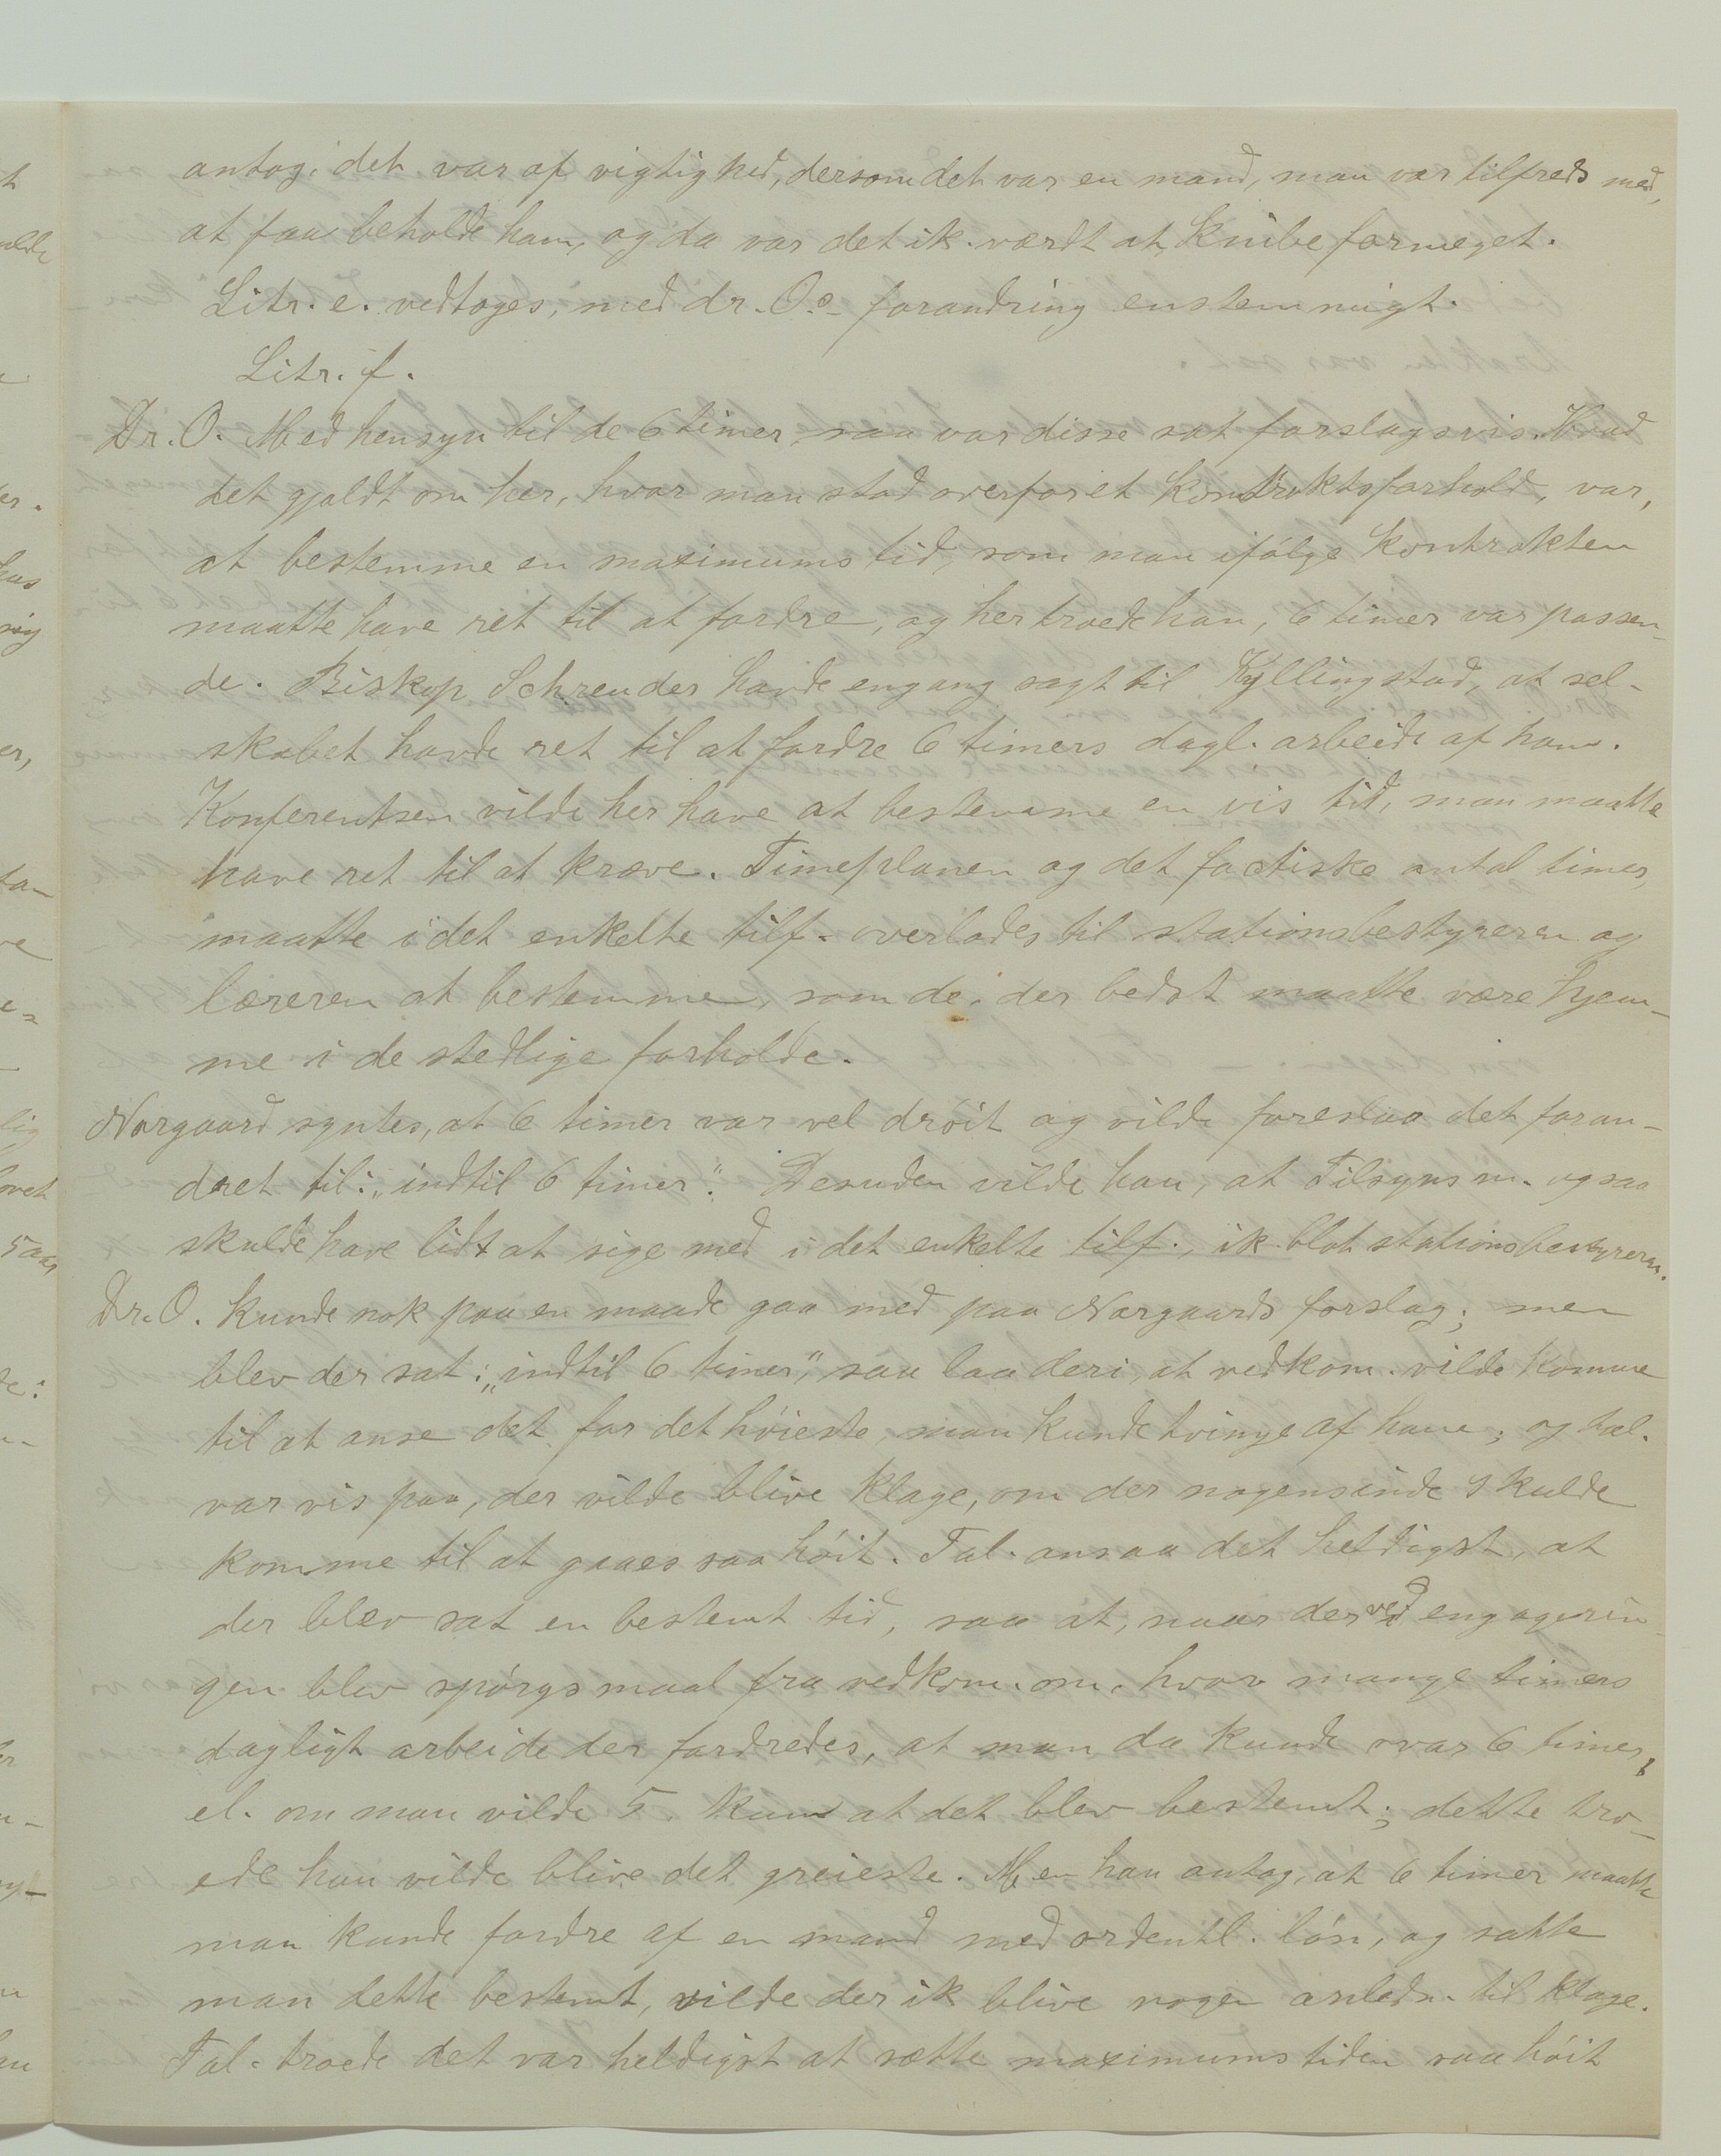 antog, det var af vigtighed, dersom det var en mand, man var tilfreds med,
at faa beholde ham, og da var det ik. værdt at knibe formeget.
Litr. e. vedtoges, med dr. O.s forandring enstemmigt.
Litr. f.
Dr. O. Med hensyn til de 6 timer, saa var disse sat forslagsvis. Hvad
det gjaldt om her, hvor man stod overfor et kontraktsforhold, var,
at bestemme en maximumstid, som man ifølge kontrakten
maatte have ret til at fordre, og her troede han, 6 timer var passen-
de. Biskop Schreuder havde engang sagt til Kyllingstad, at sel-
skabet havde ret til at fordre 6 timers dagl. arbeide af ham.
Konferentsen vilde her have at bestemme en vis tid, man maatte
have ret til at kræve. Timeplanen og det factiske antal timer,
maatte i det enkelte tilf. overlades til stationsbestyreren og
læreren at bestemme, som de, der bedst maatte være hjem-
me i de stedlige forholde.
Norgaard syntes, at 6 timer var vel drøit og vilde foreslaa det foran-
dret til: „indtil 6 timer“. Desuden vilde han, at Tilsynsm. ogsaa
skulde have lidt at sige med i det enkelte tilf., ik blot stationsbestyreren.
Dr. O. kunde nok paa en maade gaa med paa Norgaards forslag; men
blev der sat: „indtil 6 timer“, saa laa deri, at vedkom. vilde komme
til at anse det for det høieste, man kunde tvinge af ham; og tal.
var vis paa, der vilde blive klage, om der nogensinde skulde
komme til at gaaes saa høit. Tal. ansaa det heldigst, at
der blev sat en bestemt tid, saa at, naar der ved engagerin-
gen blev spørgsmaal fra vedkom. om, hvor mange timers
dagligt arbeide der fordredes, at man da kunde svar 6 timer,
el. om man vilde 5. kun at det blev bestemt; dette tro-
ede han vilde blive det greieste. Men han antog, at 6 timer maatte
man kunde fordre af en mand med ordentl. løn, og satte
man dette bestemt, vilde der ik blive nogen anledn. til klage.
Tal. troede det var heldigst at sætte maximumstiden saa høit